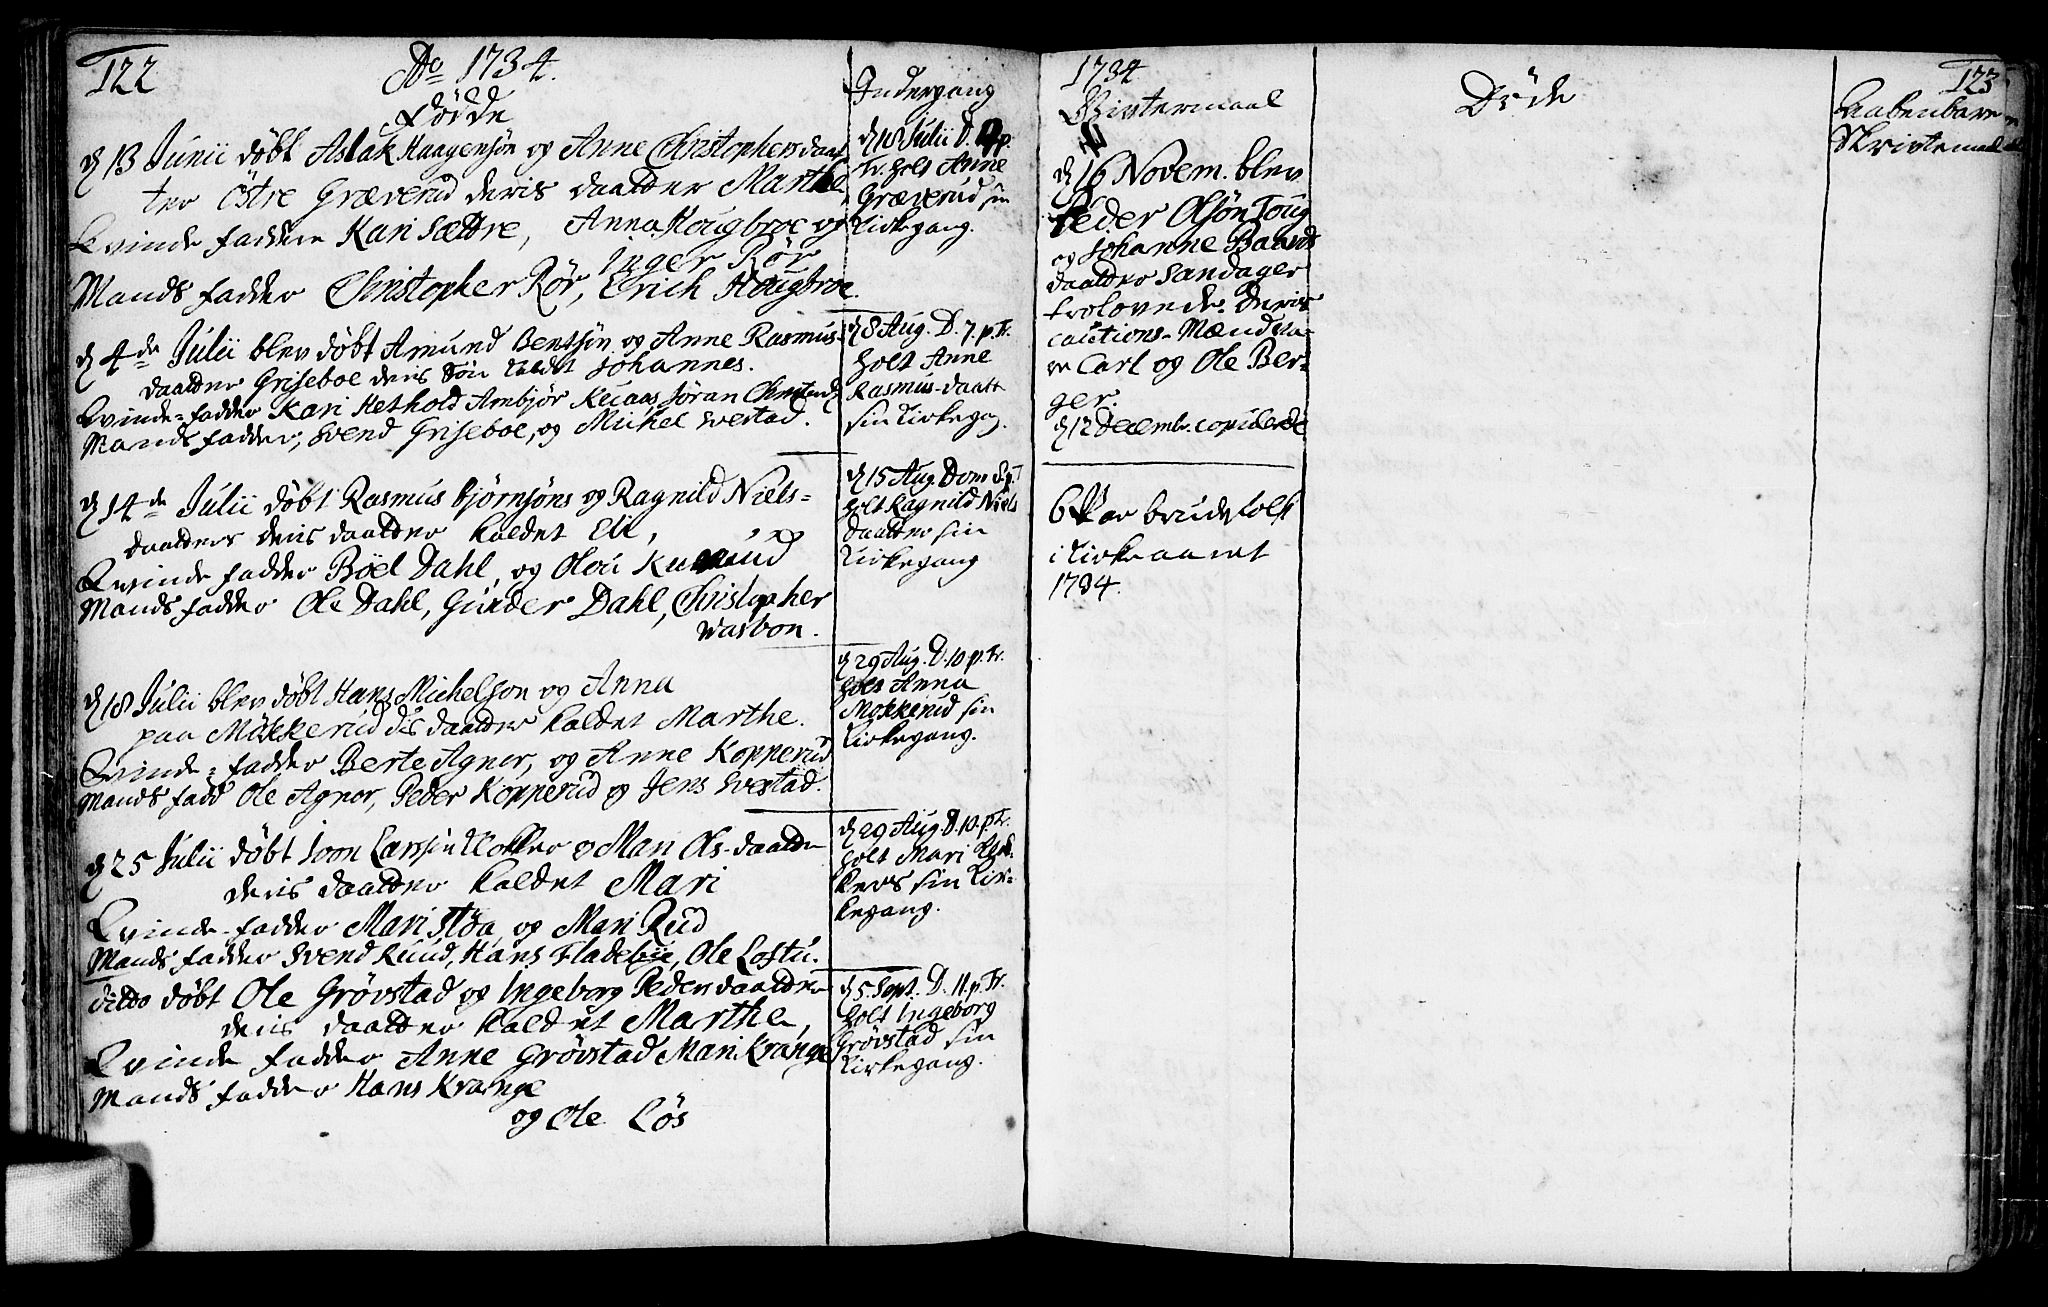 122
Ao 1734.
Födde
d 13 Junii döbt Aslak Haagensön og Anne Christophersdaat
ter Östre Græverud deris daatter Marthe
Qvinde fadder Kari Sættre, Anna Hougbroe og
Inger Rör
Mands fadder Christopher Rör, Erich Hougbroe.
d 4de Julii blev döbt Amund Bentsön og Anne Rasmus-
daatter Griseboe deris Sön kaldet Johannes.
Qvinde-fadder Kari Hethold Arnbjör Kuaas Jöran
Mands fadder, Svend Griseboe, og Michel Svestad.
d 14de Julii döbt Rasmus Bjørnsöns og Ragnild Niels-
daatters deris daatter kaldet Eli,
Qvinde fadder Böel Dahl, og Olou
Mands fadder Ole Dahl, Gunder Dahl, Christopher
Wasbon.
d 18 Julii blev döbt Hans Michelson og Anna
paa Mökkerud dis daatter kaldet Marthe.
Qvinde-fadder Berte Agner, og Anne Kopperud
Mands fadd Ole Agnor, Peder Kopperud og Jens Svestad.
d 25 Julii döbt Joon Larssön Klokker og Mari Ols-daatter
deris daatter kaldet Mari
Qvinde-fadder Mari Stöa og Mari Rud
Mands fadder Svend Ruud, Hans Fladebÿe, Ole Lostu.
ditto döbt Ole Grövstad og Ingeborg Pedersdaatter
deris daatter kaldet Marthe,
Qvinde fadder Anne Grövstad Mari Krange
Mands fadder Hans Krange
og Ole Lös
Indergang
d 18 Julii D. p.
Tr. holt Anne
Græverud sin
Kirkegang.
d 8 Aug. D. 7. p. Tr.
holt Anne
Rasmus-daatt
sin Kirkegag.
d 15 Aug. Dom 8 p T
holt Ragnild Niels
daatter sin
Kirkegang
d 29 Aug. D. 10 p. Tr.
holt Anna
Mokkerud sin
Kirkegang.
d 29 Aug. D. 10. p. Tr.
holt Mari Klok-
kers sin Kir-
kegang.
d 5. Sept. D. 11. p. Tr.
holt Ingeborg
Grövstad sin
Kirkegang.
1734
Givtermaal
d 16 Novem. blev
Peder Olsön Toug
og Johanne Baards
daatter Sandager
trolovede. Deris
cautions-Mænd va-
re Carl og Ole Ber-
ger.
d 12 Decembr. copulerede
6 Par brudefolk
i Kirke aaret
1734.
Döde
123
Aabenbare
Skriftemaal